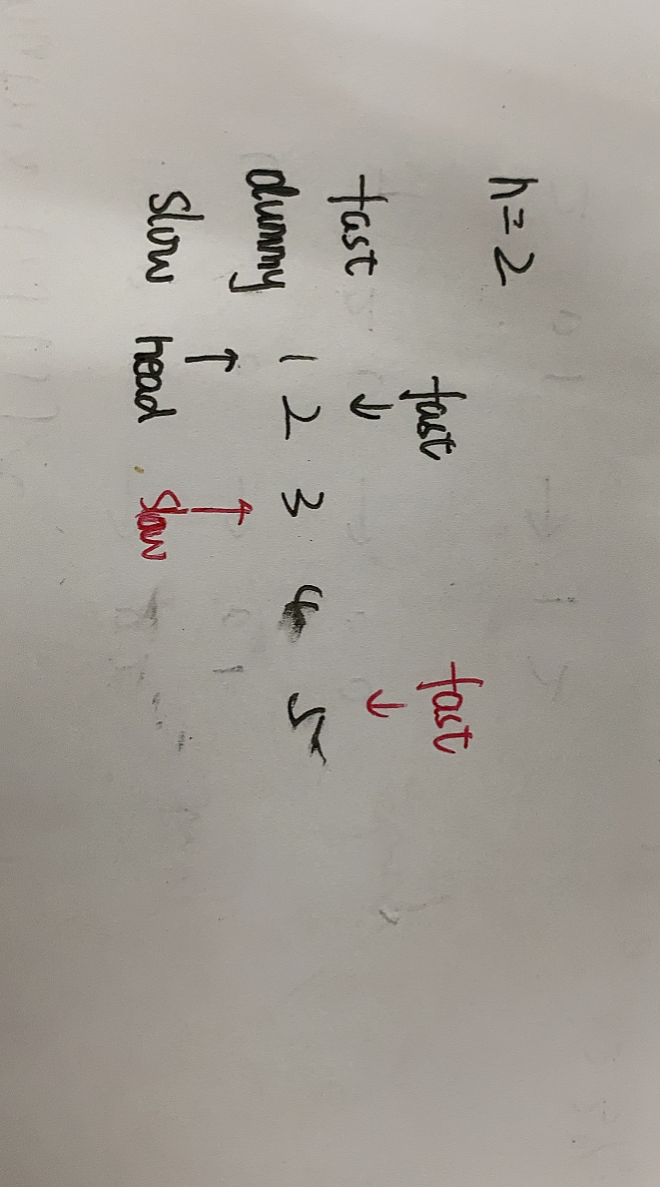 n=2
fast fast
fast ↓ ↓
dummy 1 2 3 4 5
↑ ↑
slow head slow